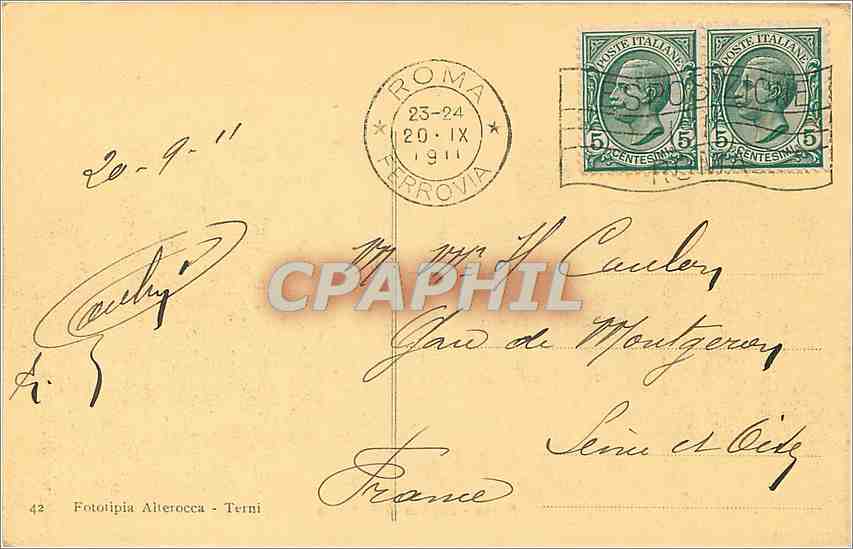 POSTE ITALIANE
5 CENTESIMI 5
POSTE ITALIANE
5 CENTESIMI 5
ESPOSIZIONE
ROMA
ROMA
23-24
20 · IX
1911
FERROVIA
20-9-11
CPAPHIL
M. Mr H. Caulon
Gare de Montgeron
Seine et Oise
France
42 Fototipia Alterocca - Terni